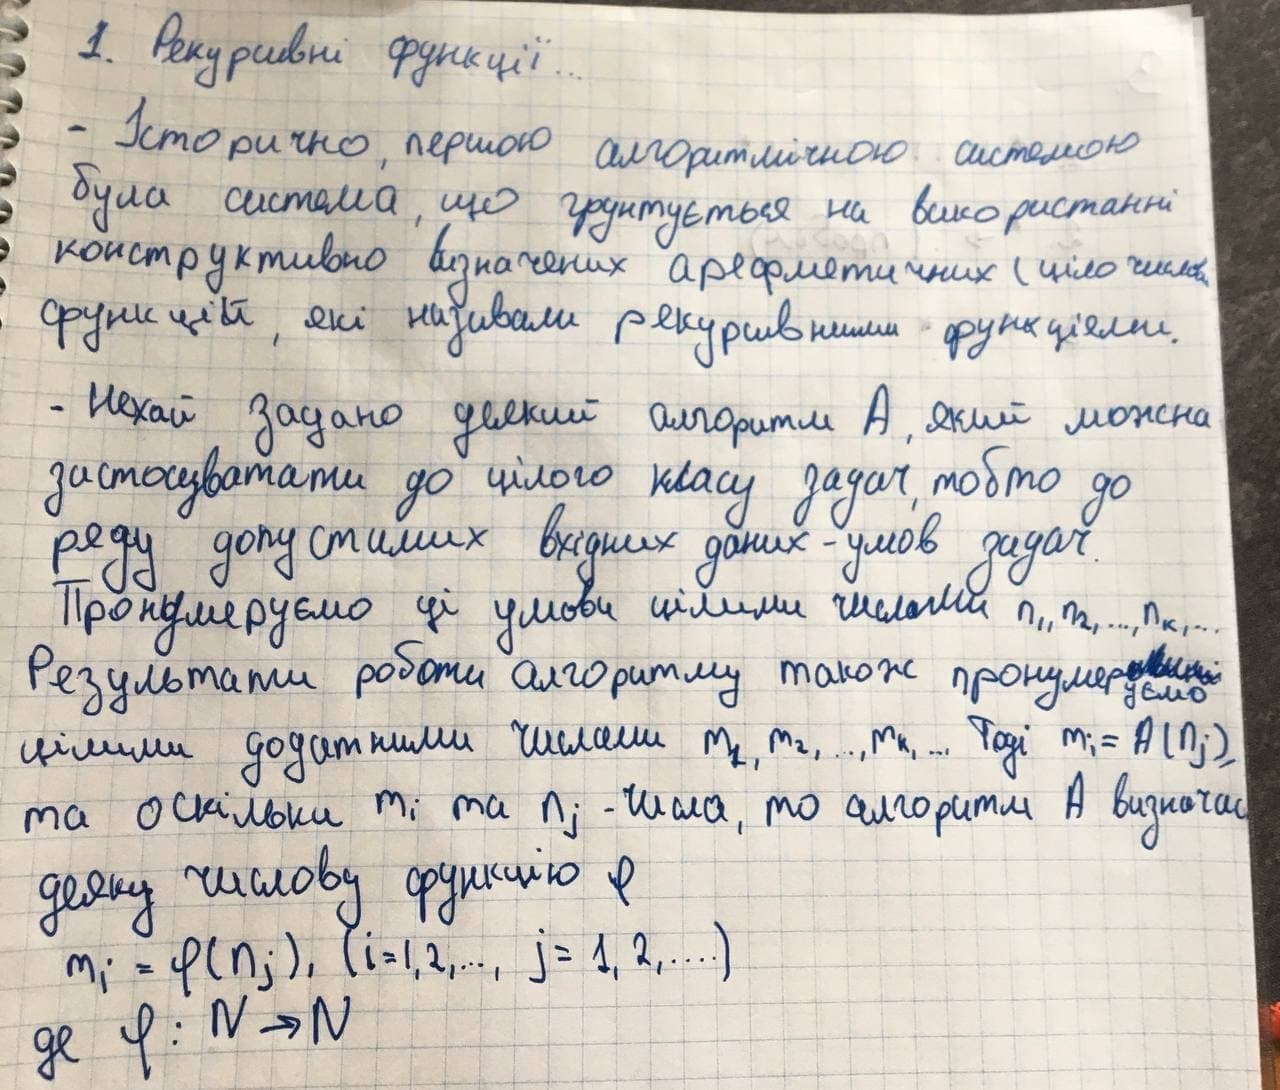 1. Рекурсивні функції...
- Історично, першою алгоритмічною системою
була система, що грунтується на використанні
конструктивно визначених арефметичних (ціло числов
функцій, які називали рекурсивними функціями.
- Нехай задано деякий алгоритм A, який можна
застосуватати до цілого класу задач, тобто до
ряду допустимих вхідних даних - умов задач.
Пронумеруємо ці умови цілими числами n₁, n₂, ..., nₖ, ...
Результати роботи алгоритму також пронумеруємо
цілими додатними числами m₁, m₂, ..., mₖ, ... Тоді mᵢ = A(nⱼ),
та оскільки mᵢ та nⱼ - числа, то алгоритм A визначає
деяку числову функцію φ
mᵢ = φ(nⱼ), (i=1,2,..., j = 1, 2, ....)
де φ : N → N